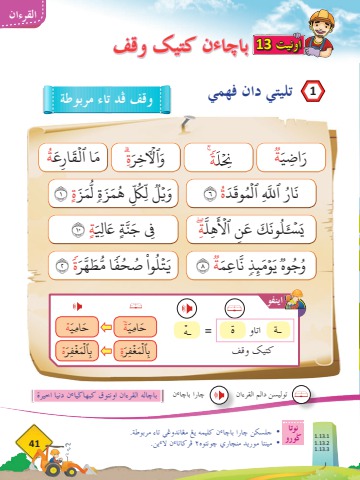 القرءان
اونيت 13
باچاءن كتيک وقف
1 تليتي دان فهمي
وقف ڤد تاء مربوطة
رَاضِيَةٌ نِحْلَةً وَالْآخِرَةِ مَا الْقَارِعَةُ
نَارُ اللَّهِ الْمُوقَدَةُ ٦ وَيْلٌ لِكُلِّ هُمَزَةٍ لُمَزَةٍ ١
يَسْـَٔلُونَكَ عَنِ الْأَهِلَّةِ فِي جَنَّةٍ عَالِيَةٍ ١٠
وُجُوهٌ يَوْمَئِذٍ نَاعِمَةٌ ٨ يَتْلُوا صُحُفًا مُطَهَّرَةً ٢
اينفو
ـة اتاو ة = ـهْ
كتيک وقف
حَامِيَةٌ حَامِيَهْ
بِالْمَغْفِرَةِ بِالْمَغْفِرَهْ
توليسن دالم القرءان
چارا باچاءن
باچاله القرءان اونتوق كبهاݢياءن دنيا اخيرة
نوتا ݢورو
• جلسكن چارا باچاءن كليمه يڠ مڠاندوڠي تاء مربوطة.
• مينتا موريد منچاري چونتوه٢ ڤركاتاءن لاءين.
1.13.1
1.13.2
1.13.3
41